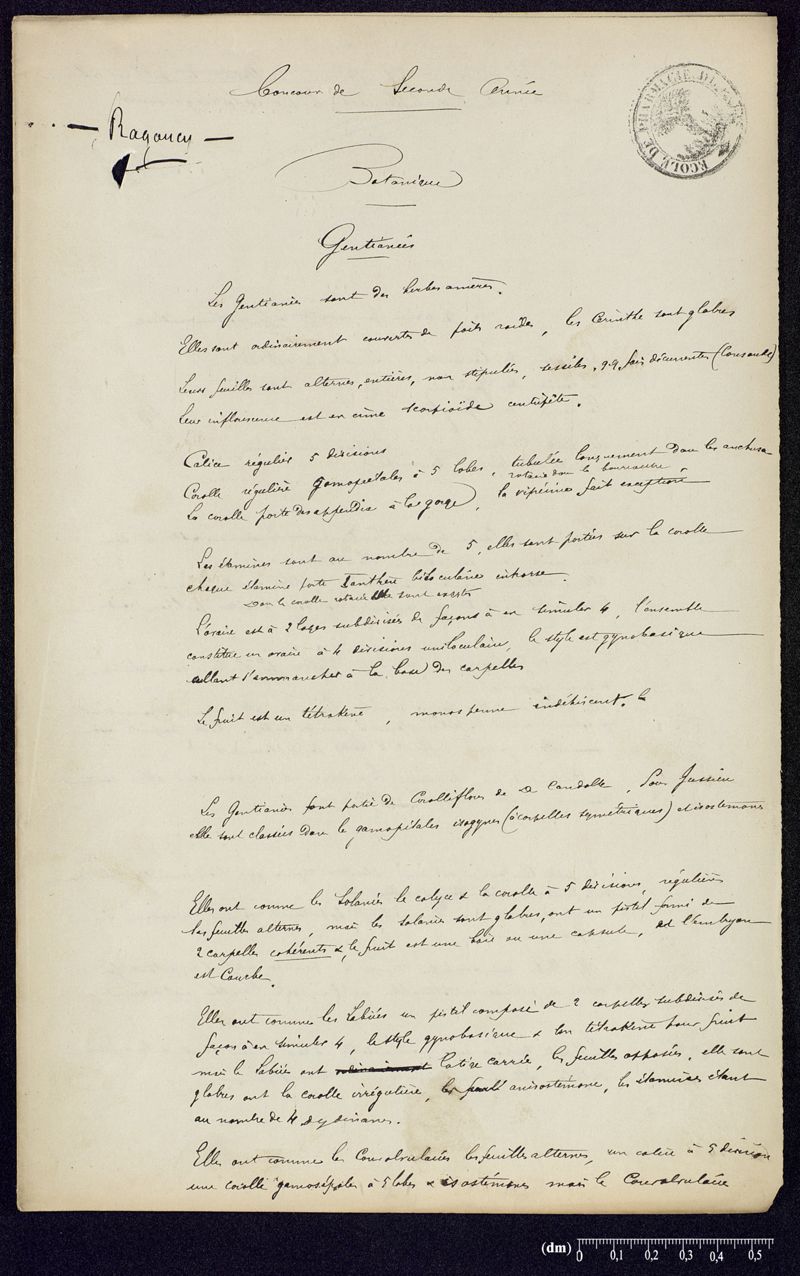 Concours de Seconde Année
ECOLE DE PHARMACIE DE PARIS
Botanique
Gentianées
Les Gentianées sont des herbes amères.
Elles sont ordinairement couvertes de poils roides, les Cerinthe sont glabres
Leurs feuilles sont alternes, entières, non stipulées, sessiles, qq. fois décurrentes (Consoude)
leur inflorescence est en cime scorpioïde centripète.
Calice régulier 5 divisions
Corolle régulière gamopétales à 5 lobes, tubulée longuement dans les anchusa
rotacée dans la bourrache
la corolle porte des appendices à la gorge, la vipérine fait exception
Les étamines sont au nombre de 5, elles sont portées sur la corolle
chaque étamine porte 1 anthère biloculaire introrse.
Dans la corolle rotacée elle sont exsertes
L'ovaire est à 2 loges subdivisées de façons à en simuler 4, l'ensemble
constitue un ovaire à 4 divisions uniloculaire, le style est gynobasique
allant s'emmancher à la base des carpelles
Le fruit est un tétrakène, monosperme indéhiscent. le
Les Gentianées font partie de Corolliflores de De Candolle, Pour Jussieu
elle sont classées dans le gamopétales isogynes (à carpelles symétriques) et isostemones
Elles ont comme les Solanées le calyce & la corolle à 5 divisions, régulières
les feuilles alternes, mais les solanées sont glabres, ont un pistil formé de
2 carpelles cohérents &, le fruit est une baie ou une capsule, et l'embryon
est Courbe.
Elles ont comme les Labiées un pistil composé de 2 carpelles subdivisés de
façon à en simuler 4, le style gynobasique & un tétrakène pour fruit
mais le Labiée ont ordinairement la tige carrée, les feuilles opposées, elle sont
glabres ont la corolle irrégulière, anisostémone, les étamines étant
au nombre de 4 dydinames.
Elles ont comme les Convolvulacées les feuilles alternes, un calice à 5 division
une corolle gamosépales à 5 lobes & isostémones mais le Convolvulacée
(dm) 0 0,1 0,2 0,3 0,4 0,5